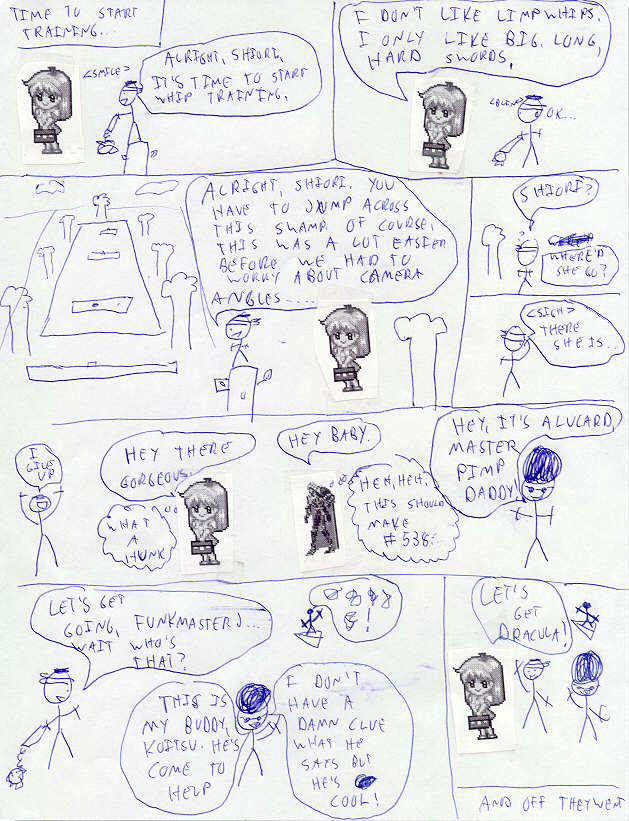 TIME TO START
TRAINING...
<SMILE>
ALRIGHT, SHIORI,
IT'S TIME TO START
WHIP TRAINING.
I DON'T LIKE LIMP WHIPS.
I ONLY LIKE BIG, LONG,
HARD SWORDS.
<BLINK>
OK...
ALRIGHT, SHIORI. YOU
HAVE TO JUMP ACROSS
THIS SWAMP. OF COURSE,
THIS WAS A LOT EASIER
BEFORE WE HAD TO
WORRY ABOUT CAMERA
ANGLES....
SHIORI?
WHERE'D
SHE GO?
<SIGH>
THERE
SHE IS..
I
GIVE
UP
HEY THERE
GORGEOUS.
WHAT
A
HUNK
HEY BABY.
HEH, HEH.
THIS SHOULD
MAKE
#538.
HEY, IT'S ALUCARD,
MASTER
PIMP
DADDY!
LET'S GET
GOING, FUNKMASTER J...
WAIT WHO'S
THAT?
!
THIS IS
MY BUDDY,
KOITSU. HE'S
COME TO
HELP
I DON'T
HAVE A
DAMN CLUE
WHAT HE
SAYS BUT
HE'S
COOL!
LET'S
GET
DRACULA!
AND OFF THEY WENT